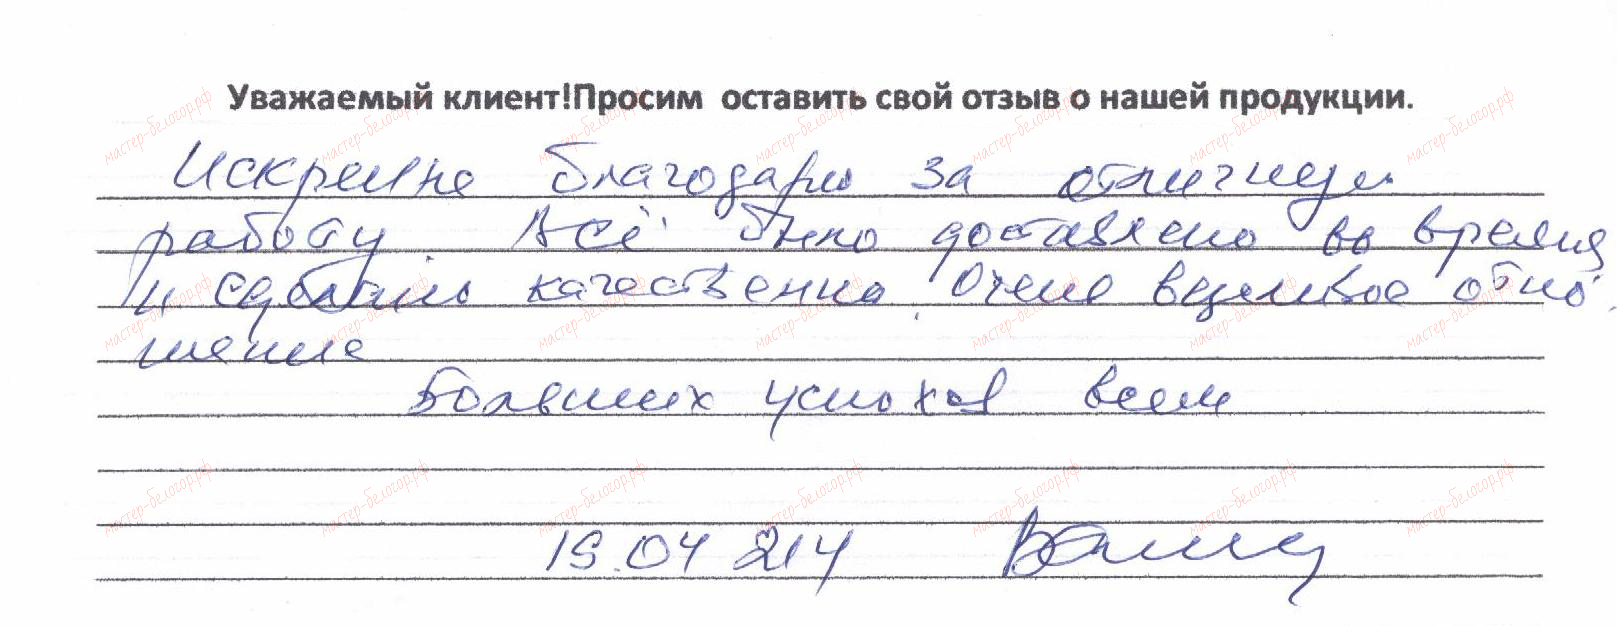 Уважаемый клиент!Просим оставить свой отзыв о нашей продукции.
Искренне благодарю за отличную
работу. Всё было доставлено во время
и сделано качественно. Очень вежливое отно
шение
Больших успехов всем
15.04 214
мастер-белогор.рф